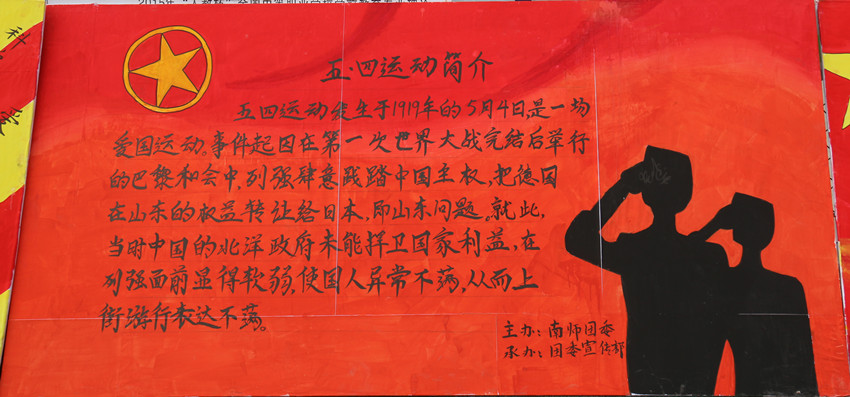 五·四运动简介
五四运动发生于1919年的5月4日,是一场
爱国运动。事件起因在第一次世界大战完结后举行
的巴黎和会中,列强肆意践踏中国主权,把德国
在山东的权益转让给日本,即山东问题。就此,
当时中国的北洋政府未能捍卫国家利益,在
列强面前显得软弱,使国人异常不满,从而上
街游行表达不满。
主办:南师团委
承办:团委宣传部